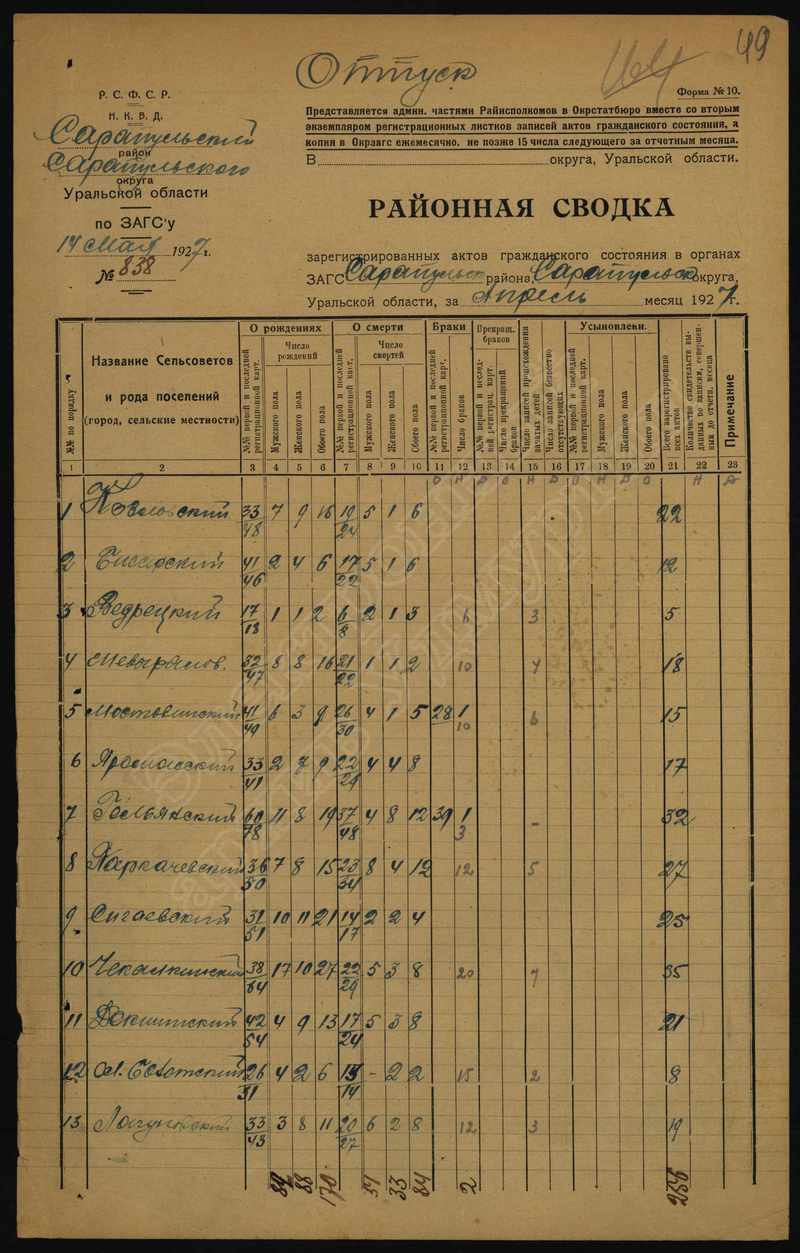 49
Отпуск
Форма № 10.
Р. С. Ф. С. Р.
Н. К. В. Д.
Сарапульский
район
Сарапульского
округа
Уральской области
по ЗАГС'у
14 мая 1927 г.
№ 838
Представляется админ. частями Райисполкомов в Окрстатбюро вместе со вторым
экземпляром регистрационных листков записей актов гражданского состояния, а
копия в Окрзагс ежемесячно, не позже 15 числа следующего за отчетным месяца.
В округа, Уральской области.
РАЙОННАЯ СВОДКА
зарегистрированных актов гражданского состояния в органах
ЗАГС Сарапульск района, Сарапульск округа,
Уральской области, за Апрель месяц 1927 г.
№№ по порядку
Название Сельсоветов и рода поселений (город, сельские местности)
О рождениях
О смерти
Браки
Прекращ. браков
Усыновлени.
№№ первой и последней регистрационной карт.
Число рождений
Мужского пола
Женского пола
Обоего пола
№№ первой и последней регистрационной карт.
Число смертей
Мужского пола
Женского пола
Обоего пола
№№ первой и последней регистрационной карт.
Число браков
№№ первой и последней регистрац. карт.
Число прекращений браков
Число записей происхождения внебрачных детей
Число записей безвестно отсутствующих
№№ первой и последней регистрационной карт.
Мужского пола
Женского пола
Обоего пола
Всего зарегистрировано всех актов
Примечание
1 2 3 4 5 6 7 8 9 10 11 12 13 14 15 16 17 18 19 20 21 22 23
1 Козловский 33/48 7 9 16 19/24 5 1 6 22
2 41/46 2 4 6 17/22 5 1 6 12
3 17/18 1 1 2 6/8 2 1 3 6 3 5
4 32/47 8 8 16 21/22 1 1 2 10 4 18
5 Мостовинский 41/49 6 3 9 26/30 4 1 5 28 1 10 6 15
6 33/41 2 7 9 22/29 4 4 8 17
7 Гольянский 60/78 11 8 19 37/48 4 8 12 39 1 3 - 32
8 Паркачевский 36/50 7 8 15 23/34 8 4 12 12 5 27
9 Сигаевский 31/51 10 11 21 14/17 2 2 4 25
10 38/64 17 10 27 22/29 5 3 8 20 7 35
11 Докшинский 42/54 4 9 13 17/24 5 3 8 21
12 26/31 4 2 6 13/14 - 2 2 15 2 8
13 Лагуновский 33/43 3 8 11 20/27 6 2 8 12 3 19
88 170 51 33 84 2 256